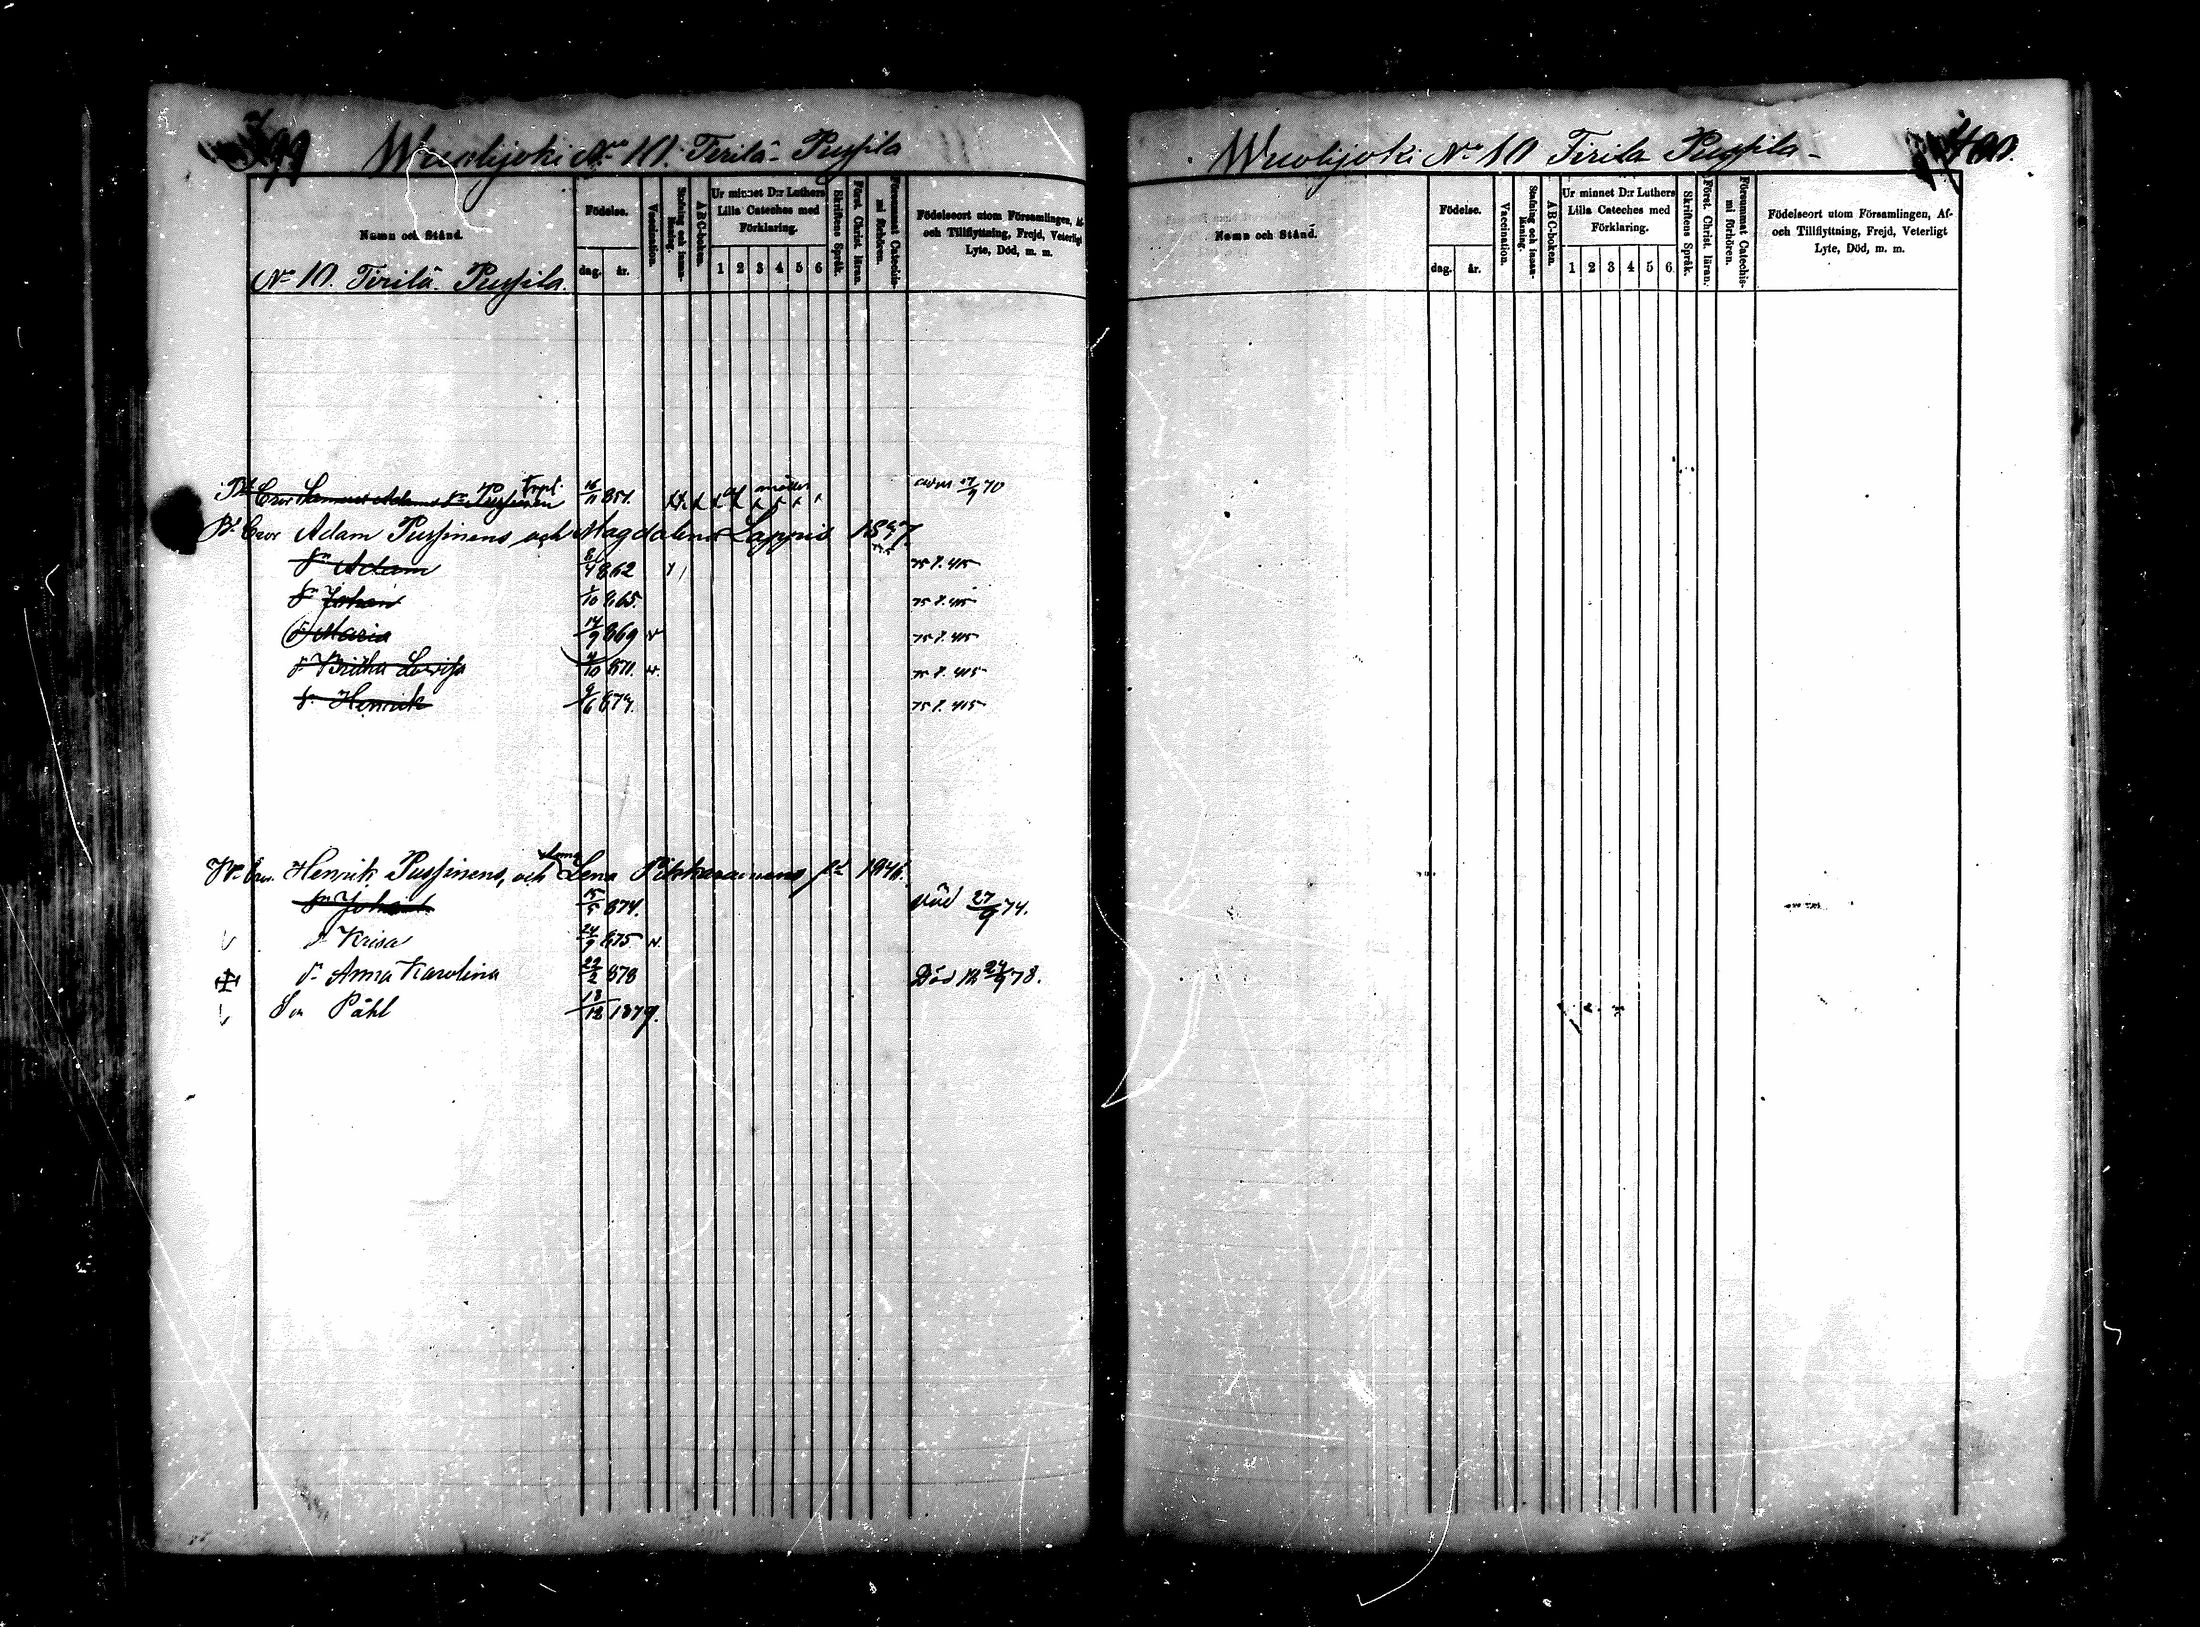 399 Wuolijoki No 10. Tirilä Pussila
Namn och Stånd.
Födelse.
dag. år.
Vaccination.
Stafning och innan-
läsning.
A B C-boken.
Ur minnet D:r Luthers
Lilla Cateches med
Förklaring.
1 2 3 4 5 6
Skriftens Språk.
Förest. Christ. läran.
Försummat Catechis-
mi förhören.
Födelseort utom Församlingen, Af-
och Tillflyttning, Frejd, Veterligt
Lyte, Död, m. m.
No 10. Tirilä Pussila.
Adam Pussinens och Magdalena Lappis
Adam 862 75 p. 415
Johan /10 865. 75 p. 415
Maria 14/9 869 v 75 p. 415
Britha Lovisa /10 871. v. 75 p. 415
Henrik 9/6 874. 75 p. 415
Henrik Pussinens, och Anna Lena
Johan 15/5 874. Död 27/9 74.
Krisa 24/9 875 v.
Anna Karolina 22/2 878 Död 24/9 78.
Son Påhl 18/12 1879.
Wuolijoki No 10 Tirila Pussila 400.
Namn och Stånd.
Födelse.
dag. år.
Vaccination.
Stafning och innan-
läsning.
A B C-boken.
Ur minnet D:r Luthers
Lilla Cateches med
Förklaring.
1 2 3 4 5 6
Skriftens Språk.
Förest. Christ. läran.
Försummat Catechis-
mi förhören.
Födelseort utom Församlingen, Af-
och Tillflyttning, Frejd, Veterligt
Lyte, Död, m. m.